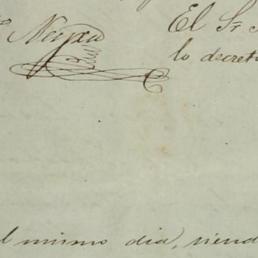 Neyra
El Sr.
lo decret
l mismo dia, siend